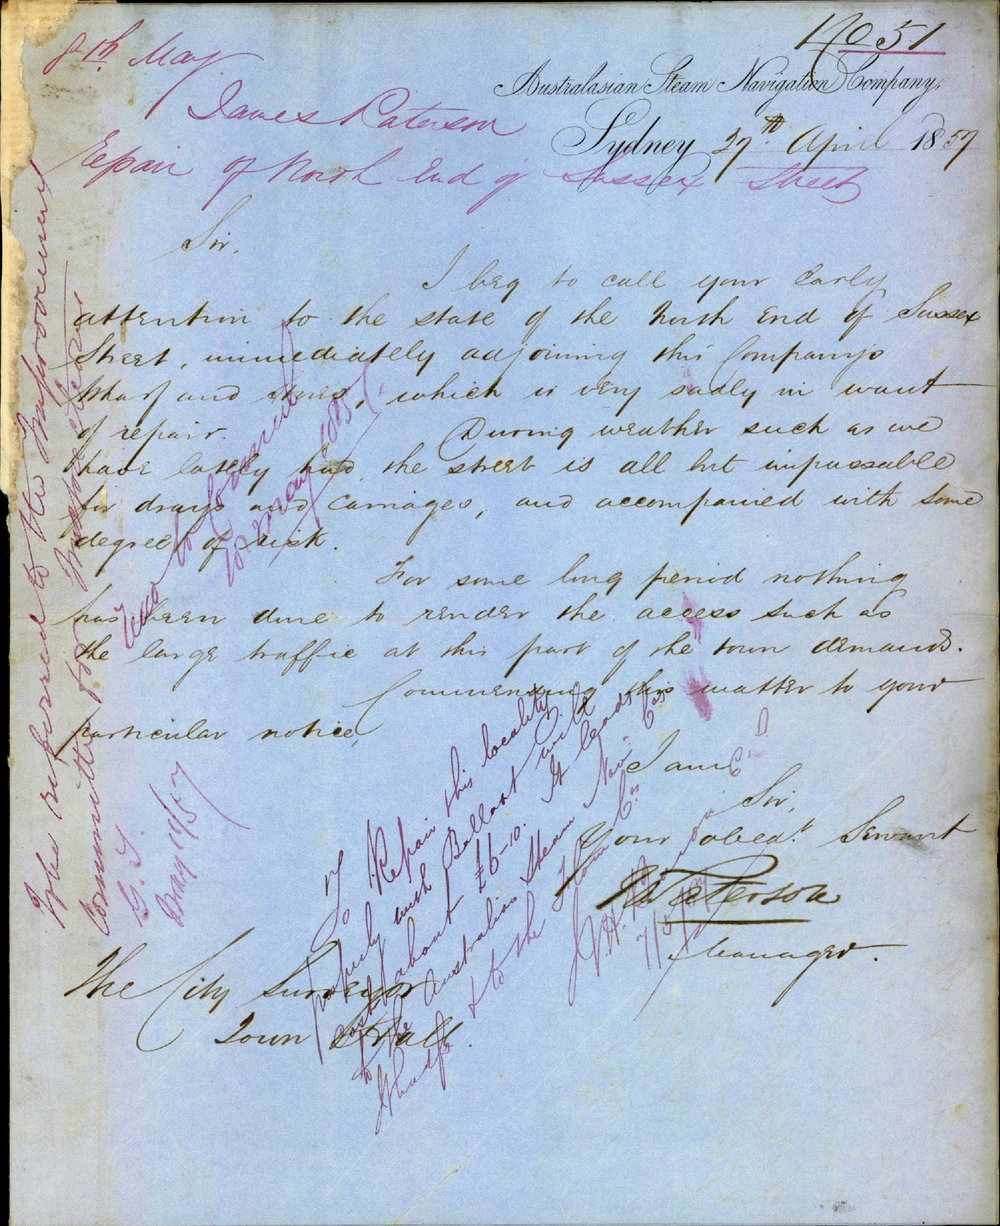 No 51
8th May
Australasian Steam Navigation Company,
James Paterson
Sydney 27th April 1857
Repair of North End of Sussex Street
Sir,
I beg to call your early
attention to the state of the North End of Sussex
Street, immediately adjoining this Company's
Wharf and Stores - which is very sadly in want
of repair. During weather such as we
have lately had the street is all but impassable
for drays and carriages, and accompanied with some
degree of risk.
For some long period nothing
has been done to render the access such as
the large traffic at this part of the town demands.
Commending this matter to your
particular notice,
I am
Sir,
Your obedt. Servant
Paterson
Manager.
The City Surveyor
Town Hall
To Repair this locality
properly with Ballast will
cost about £6-10. It leads
to the Australian Steam Nav. Co's
Wharf & to the Co's
7/5/57
to Council
May 1857
Was referred to the Improvement
Committee for
May 19/57